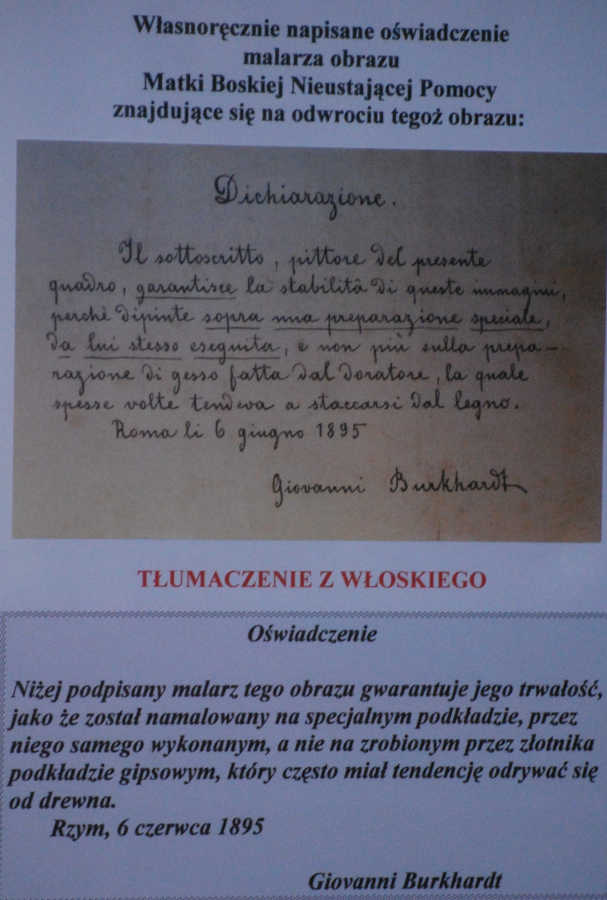 Własnoręcznie napisane oświadczenie
malarza obrazu
Matki Boskiej Nieustającej Pomocy
znajdujące się na odwrociu tegoż obrazu:
Dichiarazione.
Il sottoscritto, pittore del presente
quadro, garantisce la stabilità di queste immagini,
perchè dipinte sopra una preparazione speciale,
da lui stesso eseguita, e non più sulla prepa-
razione di gesso fatta dal doratore, la quale
spesse volte tendeva a staccarsi dal legno.
Roma li 6 giugno 1895
Giovanni Burkhardt
TŁUMACZENIE Z WŁOSKIEGO
Oświadczenie
Niżej podpisany malarz tego obrazu gwarantuje jego trwałość,
jako że został namalowany na specjalnym podkładzie, przez
niego samego wykonanym, a nie na zrobionym przez złotnika
podkładzie gipsowym, który często miał tendencję odrywać się
od drewna.
Rzym, 6 czerwca 1895
Giovanni Burkhardt